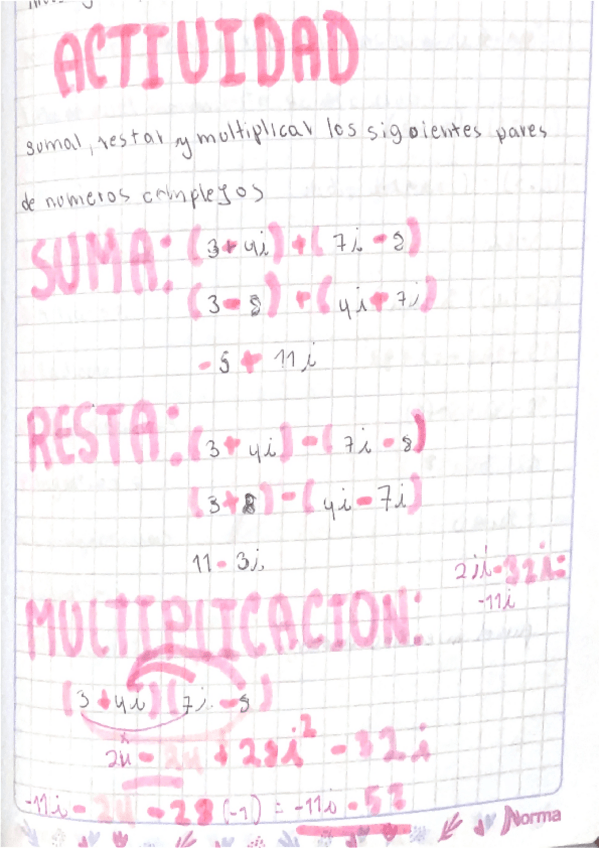 ACTIVIDAD
sumal, restar y multiplicar los siguientes pares
de numeros complejos
SUMA: (3+4i)+(7i-8)
(3-8)+(4i+7i)
-5+11i
RESTA: (3+4i)-(7i-8)
(3+8)-(4i-7i)
11-3i
21i-32i=
-11i
MULTIPLICACION:
(3+4i)(7i-8)
21i-24+28i²-32i
-11i-24-28(-1)=-11i-52
Norma